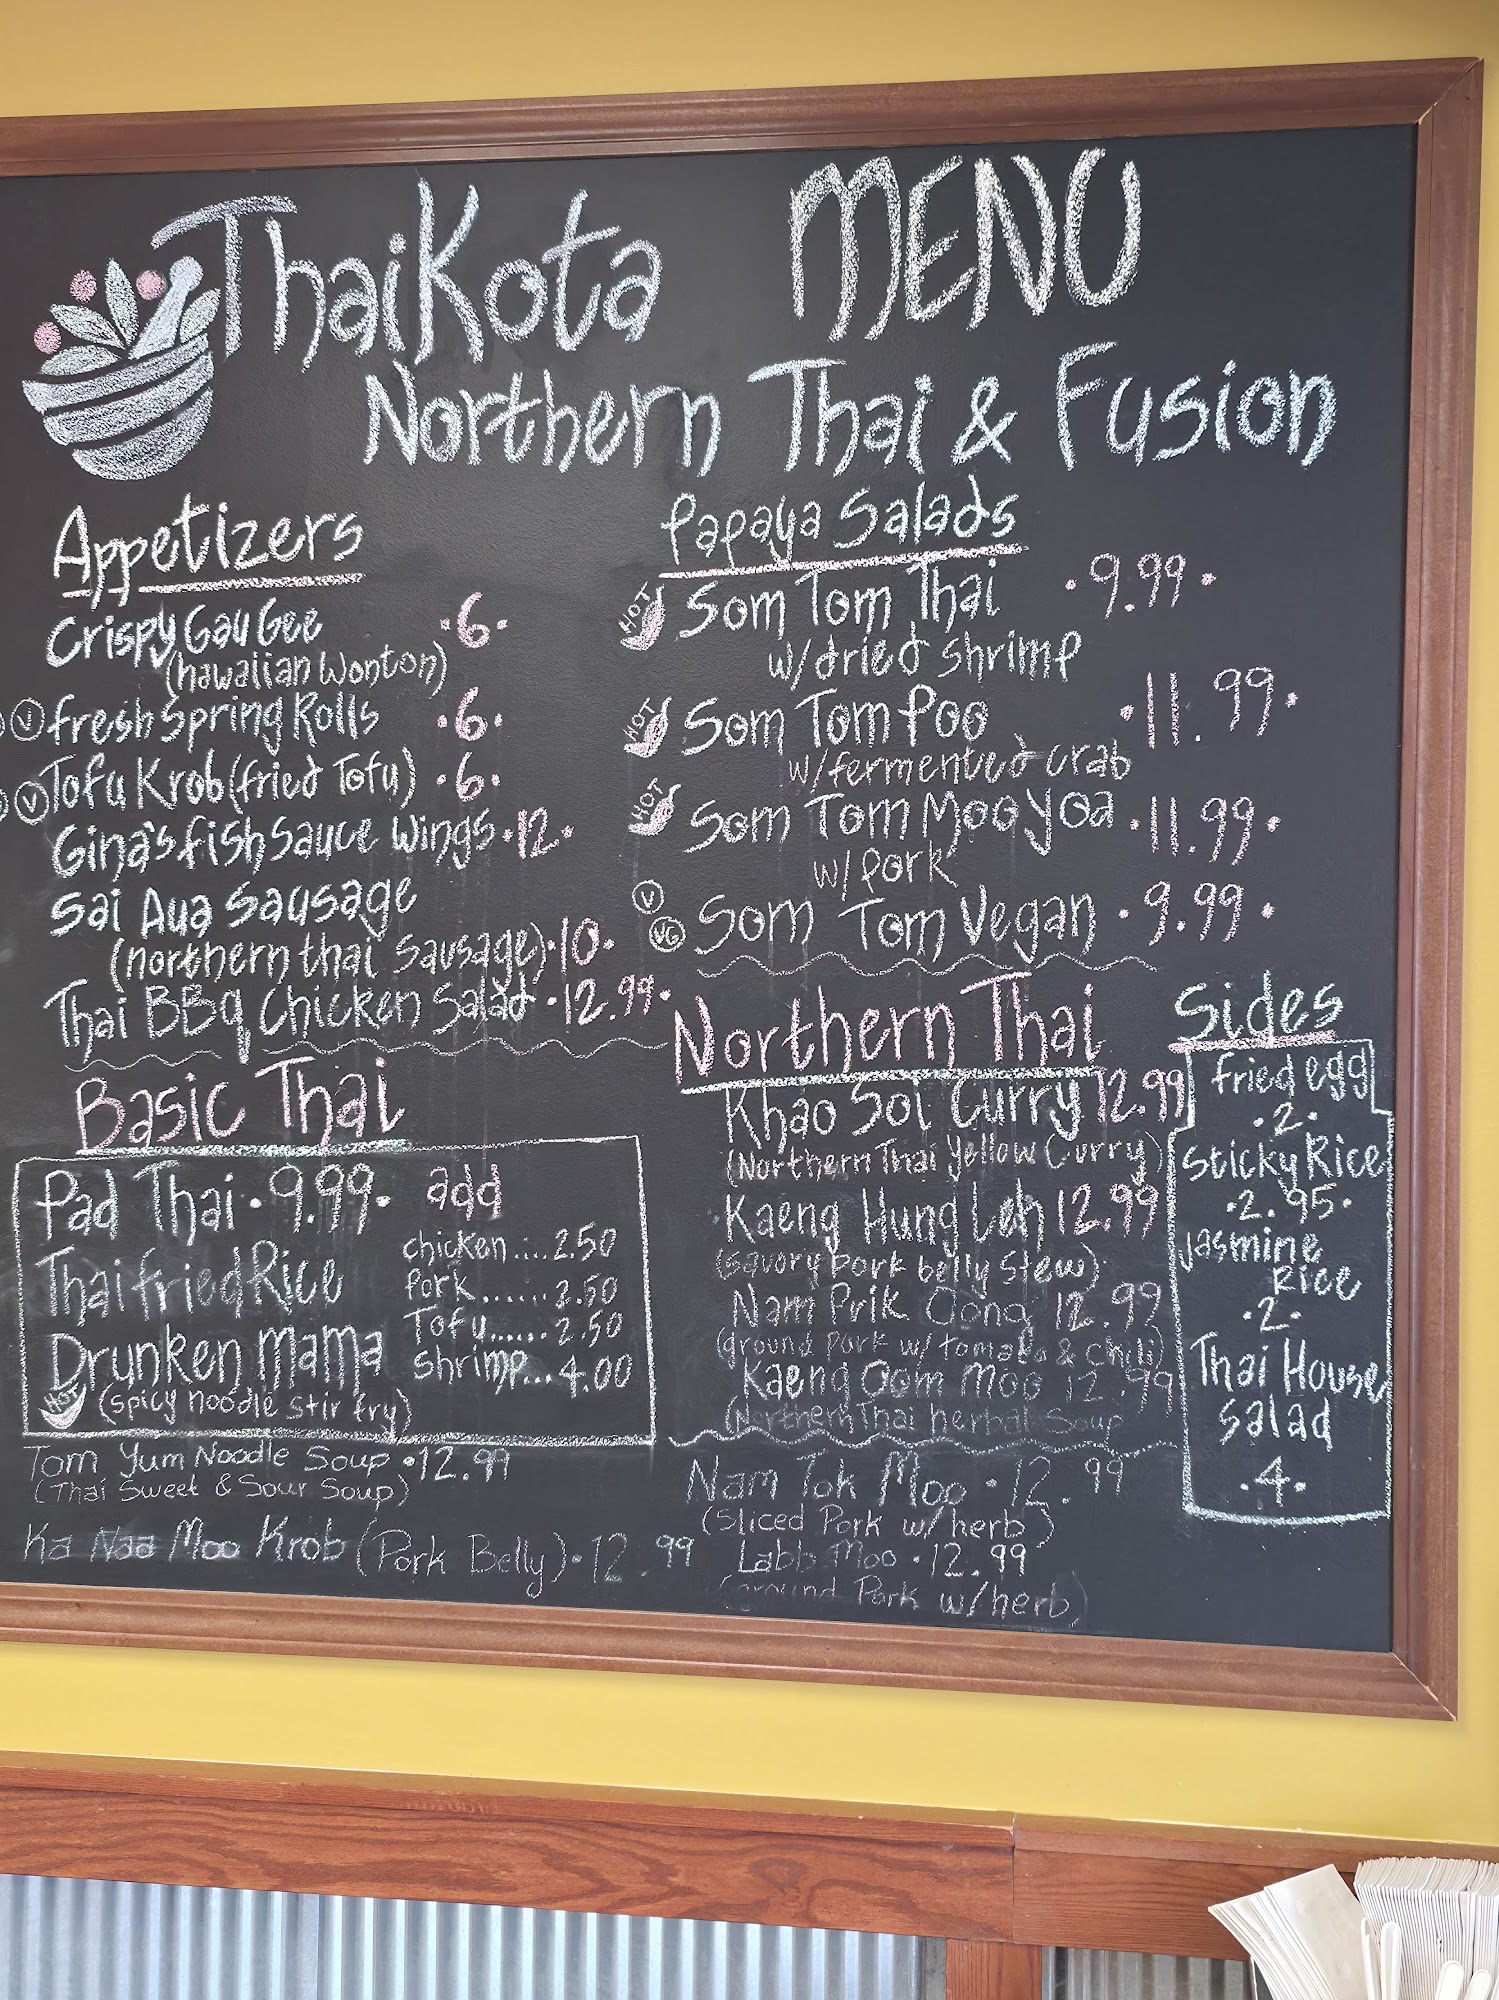 ThaiKota MENU
Northern Thai & Fusion
Appetizers
Crispy Gau Gee ·6·
(hawaiian Wonton)
V fresh Spring Rolls ·6·
V Tofu Krob (fried Tofu) ·6·
Gina's fish Sauce Wings ·12·
Sai Aua Sausage
(northern thai Sausage) ·10·
Thai BBq Chicken Salad ·12.99·
Basic Thai
Pad Thai ·9.99·
Thai fried Rice
Drunken Mama
HOT (spicy noodle stir fry)
add
chicken....2.50
Pork......2.50
Tofu......2.50
Shrimp...4.00
Tom Yum Noodle Soup ·12.99
(Thai Sweet & Sour Soup)
Ka Naa Moo Krob (Pork Belly) ·12.99
Papaya Salads
HOT Som Tom Thai ·9.99·
w/dried shrimp
HOT Som Tom Poo ·11.99·
w/fermented crab
HOT Som Tom Moo Yoa ·11.99·
w/ Pork
V VG Som Tom Vegan ·9.99·
Northern Thai
Khao Soi Curry 12.99
(Northern Thai Yellow Curry)
Kaeng Hung Leh 12.99
(Savory pork belly Stew)
Nam Prik Oong 12.99
(ground Pork w/ tomato & Chili)
Kaeng Oom Moo 12.99
(Northern Thai herbal Soup
Nam Tok Moo ·12.99
(Sliced Pork w/herb)
Labb Moo ·12.99
(ground Pork w/herb)
Sides
fried egg
·2·
Sticky Rice
·2.95·
Jasmine
Rice
·2·
Thai House
Salad
·4·